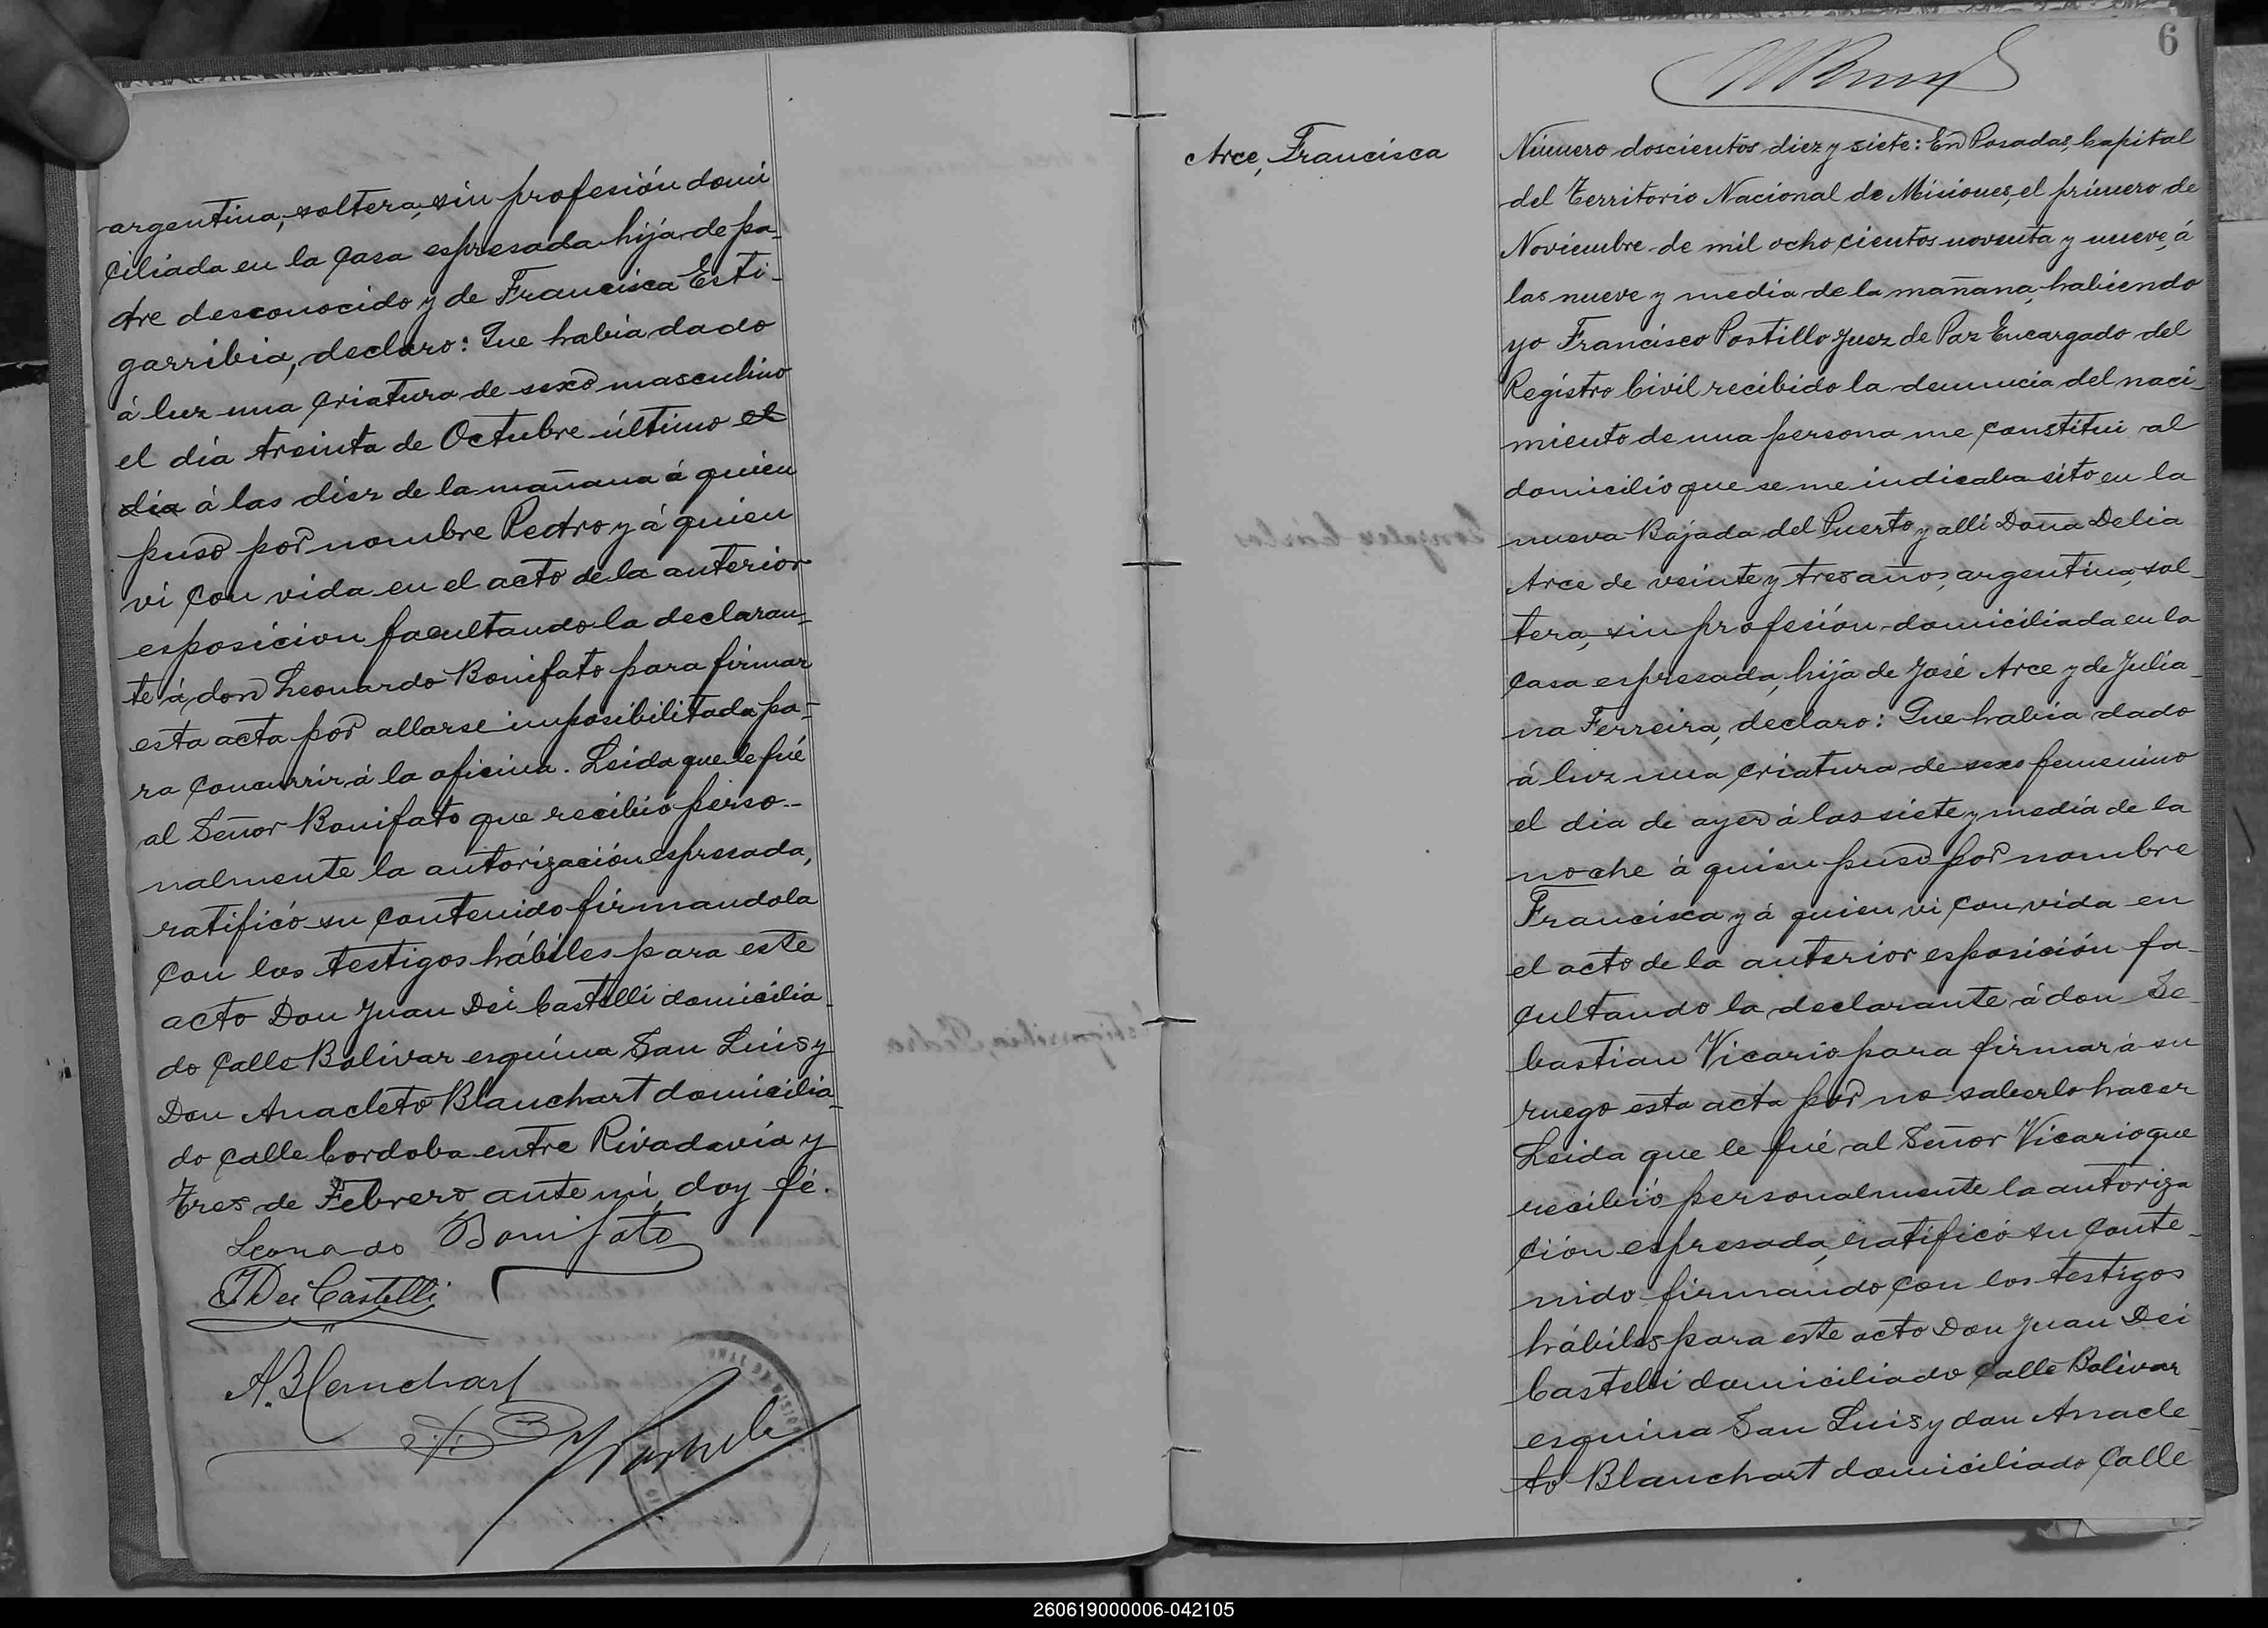 argentina, soltera, sin profesión domi
ciliada en la casa espresada hija de pa-
dre desconocido y de Francisca Esti-
garribia, declaro: Que habia dado
á luz una criatura de sexo masculino
el dia treinta de Octubre último el
dia á las diez de la mañana á quien
puso por nombre Pedro y á quien
vi con vida en el acto de la anterior
esposicion facultando la declaran-
te á don Leonardo Bonifato para firmar
esta acta por allarse imposibilitada pa-
ra concurrir á la oficina. Leida que le fué
al Señor Bonifato que recibió perso-
nalmente la autorización espresada,
ratificó su contenido firmandola
con los testigos hábiles para este
acto Don Juan Dei Castelli domicilia-
do calle Bolivar esquina San Luis y
Don Anacleto Blanchart domicilia-
do calle Cordoba entre Rivadavia y
Tres de Febrero, ante mi, doy fé.
Leonardo Bonifato
J Dei Castelli
A. Blanchart
6
Arce, Francisca
Número doscientos diez y siete: En Posadas, Capital
del Territorio Nacional de Misiones, el primero de
Noviembre de mil ocho cientos noventa y nueve, á
las nueve y media de la mañana, habiendo
yo Francisco Postillo Juez de Paz Encargado del
Registro Civil recibido la denuncia del naci-
miento de una persona me constitui al
domicilio que se me indicaba sito en la
nueva Bajada del Puerto y alli Doña Delia
Arce de veinte y tres años, argentina, sol-
tera, sin profesión domiciliada en la
casa espresada, hija de José Arce y de Julia-
na Ferreira, declaro: Que habia dado
á luz una criatura de sexo femenino
el dia de ayer á las siete y media de la
noche á quien puso por nombre
Francisca y á quien vi con vida en
el acto de la anterior esposición fa-
cultando la declarante á don Se-
bastian Vicario para firmar á su
ruego esta acta por no saberlo hacer
Leida que le fué al Señor Vicario que
recibió personalmente la autoriza
ción espresada, ratificó su conte-
nido firmando con los testigos
hábiles para este acto Don Juan Dei
Castelli domiciliado calle Bolivar
esquina San Luis y don Anacle-
to Blanchart domiciliado calle
260619000006-042105